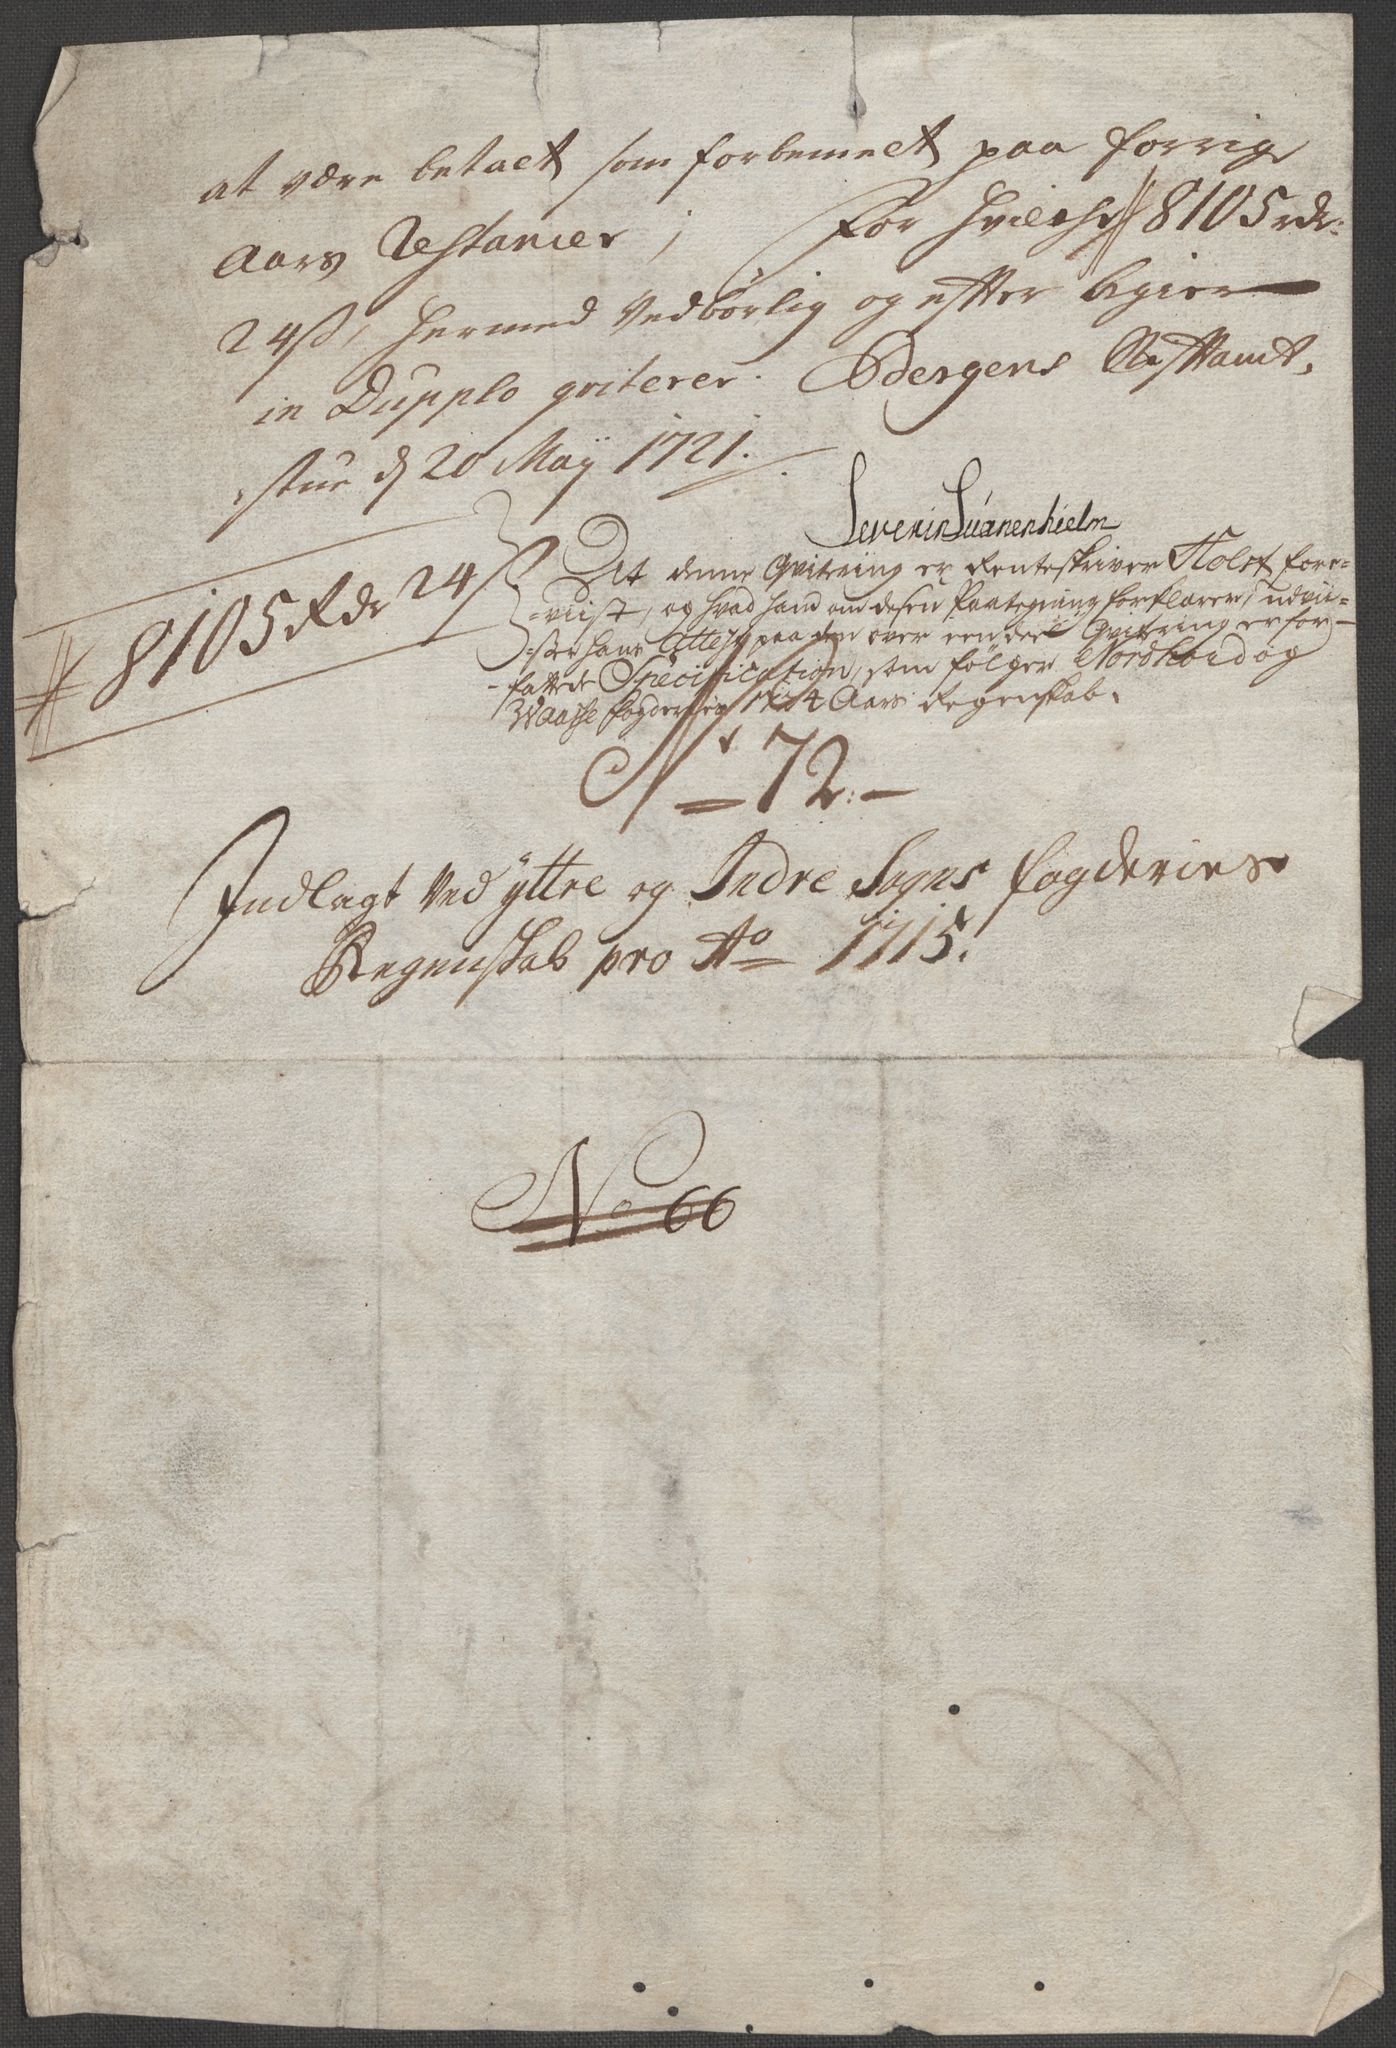 at være betaelt som forbemeelt paa forrige
Aars Restancer; For hvilche # 8105 rdr:
24 ß, hermed Vedbørlig og efter begier
in Dupplo qviterer. Bergens Stiftamt-
stue d 20 Maij 1721.
Severin Suanenhielm
# 8105 Rdr 24 ß
At denne Qvitering er Renteskriver Holst fore-
-viist, og hvad hand om desen Paategning forklarer, udvii-
-ser hans Attest paa den over een deel Qvitering er for-
-fattede Specification, som følger Nordhord og
Waasse fogderies 1714 Aars Regenskab.
No 72.
Indlagt Ved yttre og Indre Sogns fogderies
Regenskab pro Ao 1715.
No 66